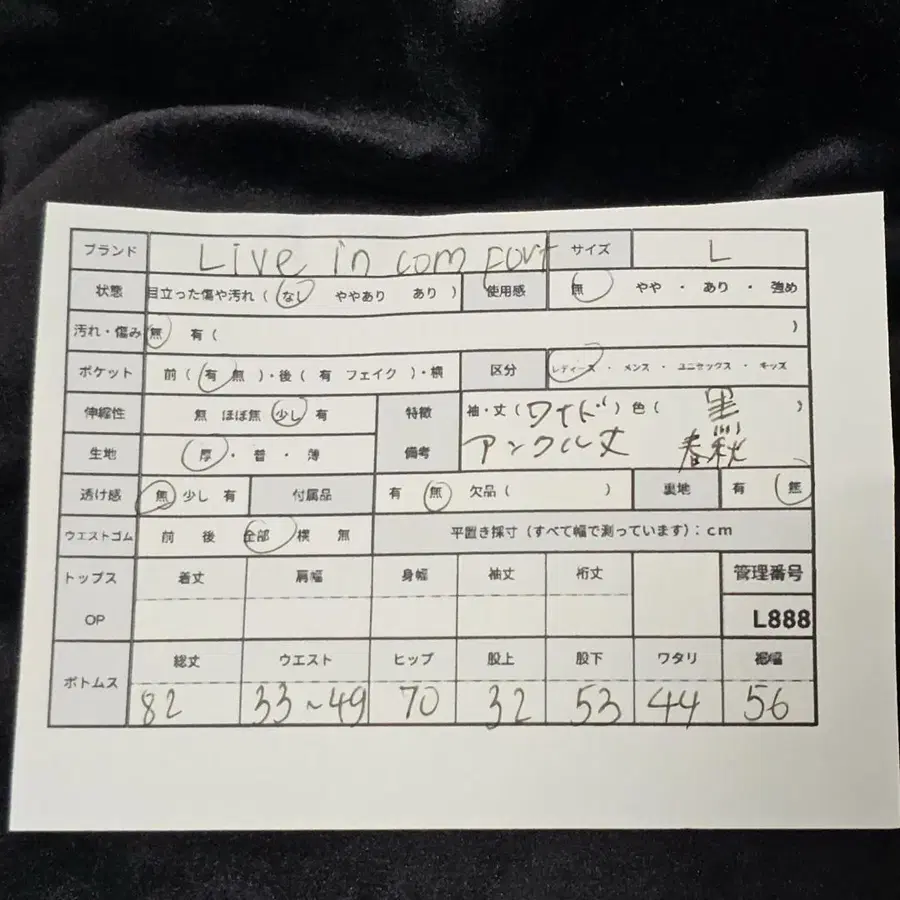 ブランド Live in comfort サイズ L
状態 目立った傷や汚れ ( なし ややあり あり ) 使用感 無 やや ・ あり ・ 強め
汚れ・傷み 無 有 ( )
ポケット 前 ( 有 無 ) ・後 ( 有 フェイク ) ・横 区分 レディース ・ メンズ ・ ユニセックス ・ キッズ
伸縮性 無 ほぼ無 少し 有 特徴 袖・丈 ( ワイド ) 色 ( 黒 )
生地 厚 ・ 普 ・ 薄 備考 アンクル丈 春秋
透け感 無 少し 有 付属品 有 無 欠品 ( ) 裏地 有 無
ウエストゴム 前 後 全部 横 無 平置き採寸 (すべて幅で測っています) : cm
トップス 着丈 肩幅 身幅 袖丈 裄丈 管理番号
OP L888
ボトムス 総丈 ウエスト ヒップ 股上 股下 ワタリ 裾幅
82 33~49 70 32 53 44 56